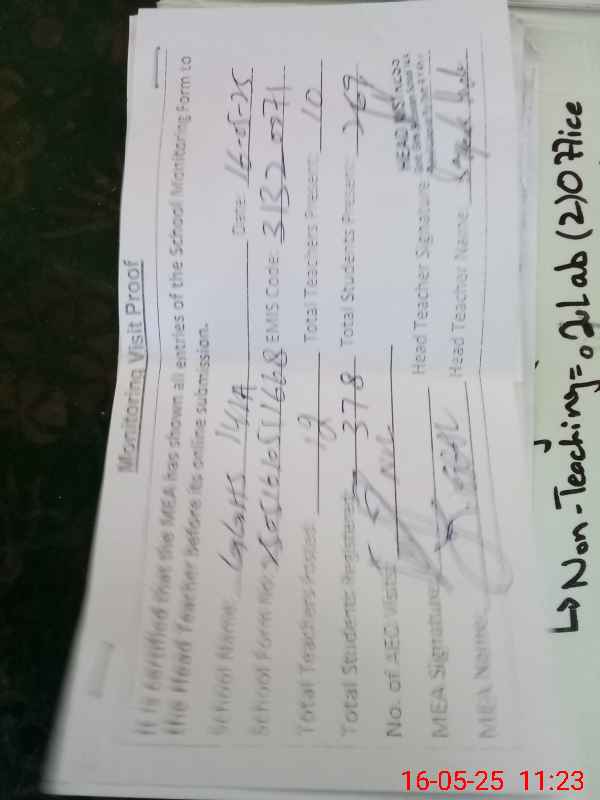 Monitoring Visit Proof
It is certified that the MEA has shown all entries of the School Monitoring Form to
the Head Teacher before its online submission.
School Name: GGHS 141A Date: 16-05-25
School Form No: EMIS Code: 31320071
Total Teachers Posted: 12 Total Teachers Present: 10
Total Students Registered: 378 Total Students Present: 269
No. of AEO Visits:
MEA Signature Head Teacher Signature
HEAD
MEA Name: Head Teacher Name
↳ Non-Teaching = 02 Lab (2) Office
16-05-25 11:23